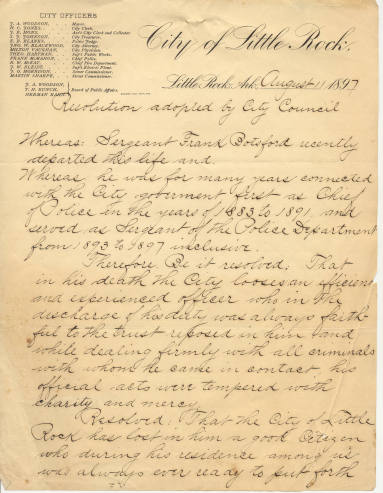 CITY OFFICERS
J. A. WOODSON, Mayor.
City Clerk.
City Treasurer.
City Attorney.
City Physician.
Chief Police.
Chief Fire Department.
Sewer Commissioner.
J. A. WOODSON,
Board of Public Affairs.
City of Little Rock.
Little Rock, Ark. August 11 1897
Resolution adopted by City Council
Whereas: Sergeant Frank Botsford recently
departed this life and.
Whereas, he was for many years connected
with the City goverment, first as Chief
of Police in the years of 1883 to 1891, and
served as Sergeant of the Police Department
from 1893 to 1897 inclusive.
Therefore, Be it resolved: That
in his death the City looses an efficient
and experienced officer who in the
discharge of his duty was always faith-
ful to the trust reposed in him and
while dealing firmly with all criminals
with whom he came in contact, his
official acts were tempered with
charity and mercy.
Resolved: That the City of Little
Rock has lost in him a good Citizen
who during his residence among us
was always ever ready to put forth